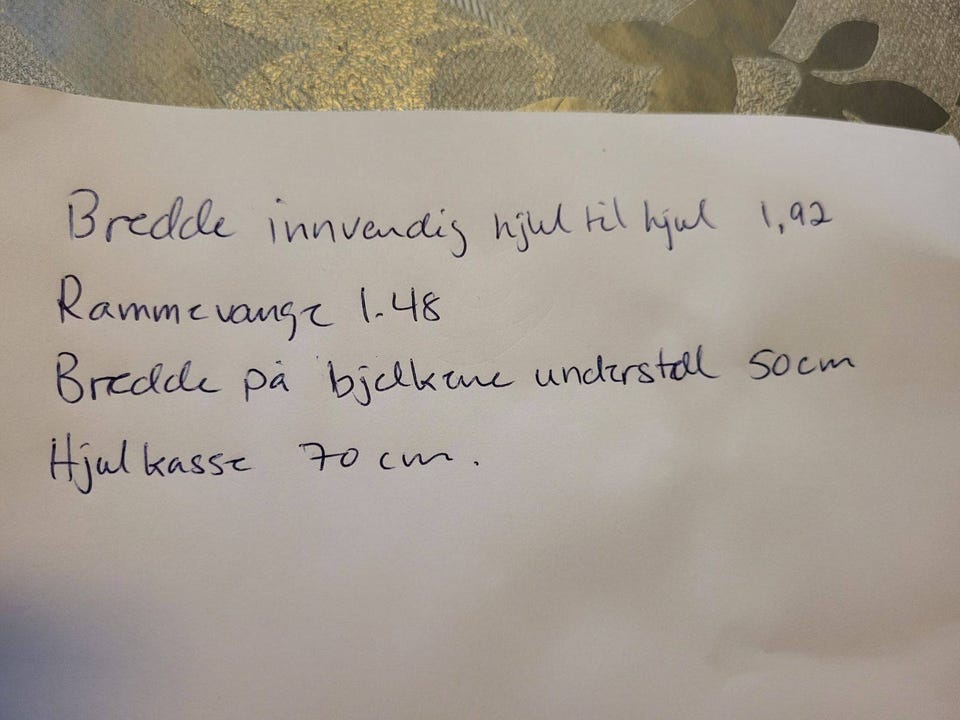 Bredde innvendig hjul til hjul 1,92
Rammevange 1.48
Bredde på bjelkene understell 50cm
Hjulkasse 70 cm.